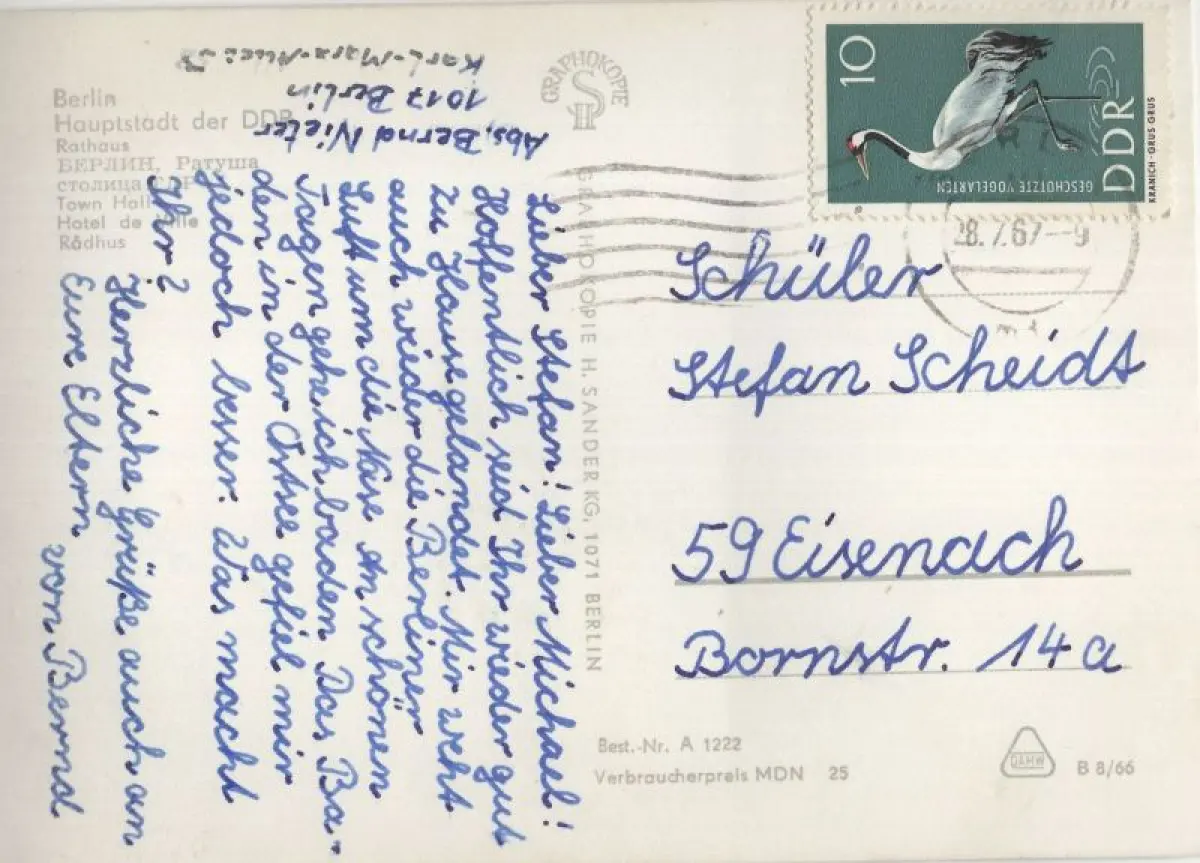 Berlin
Hauptstadt der DDR
Rathaus
БЕРЛИН, Ратуша
столица ГДР
Town Hall
Hotel de Ville
Rådhus
Abs. Bernd Nieter
1017 Berlin
Karl-Marx-Allee
Lieber Stefan! Lieber Michael!
Hoffentlich seid Ihr wieder gut
zu Hause gelandet. Mir weht
auch wieder die Berliner
Luft um die Nase. An schönen
Tagen gehe ich baden. Das Ba-
den in der Ostsee gefiel mir
jedoch besser. Was macht
Ihr?
Herzliche Grüße auch an
Eure Eltern
von Bernd
GRAPHOKOPIE
GRAPHOKOPIE H. SANDER KG, 1071 BERLIN
10
DDR
GESCHÜTZTE VOGELARTEN
KRANICH · GRUS GRUS
28.7.67--9
Schüler
Stefan Scheidt
59 Eisenach
Bornstr. 14a
Best.-Nr. A 1222
Verbraucherpreis MDN 25
DAHW
B 8/66